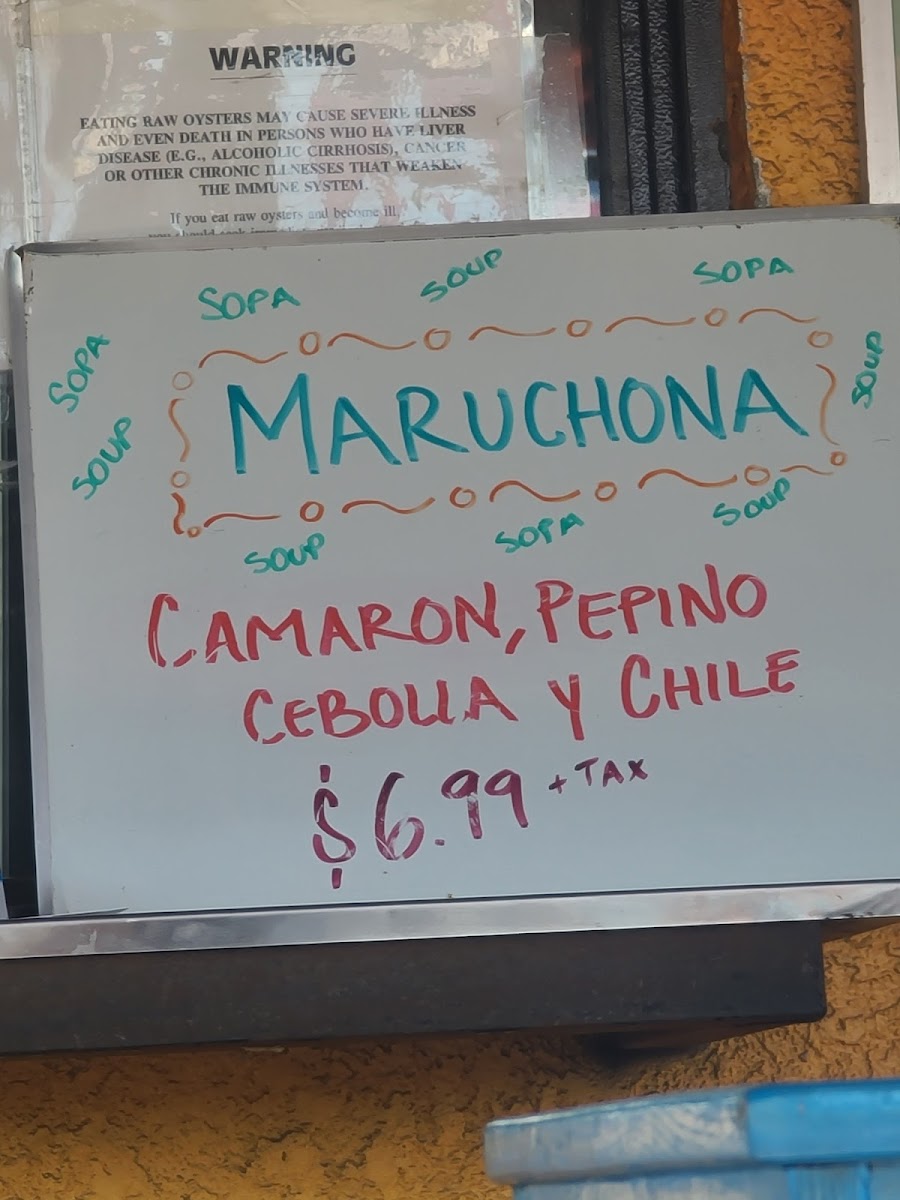 WARNING
EATING RAW OYSTERS MAY CAUSE SEVERE ILLNESS
AND EVEN DEATH IN PERSONS WHO HAVE LIVER
DISEASE (E.G., ALCOHOLIC CIRRHOSIS), CANCER
OR OTHER CHRONIC ILLNESSES THAT WEAKEN
THE IMMUNE SYSTEM.
If you eat raw oysters and become ill,
SOPA
SOUP
SOPA
SOPA
SOUP
SOUP
MARUCHONA
SOUP
SOPA
SOUP
CAMARON, PEPINO
CEBOLLA Y CHILE
$6.99 + TAX